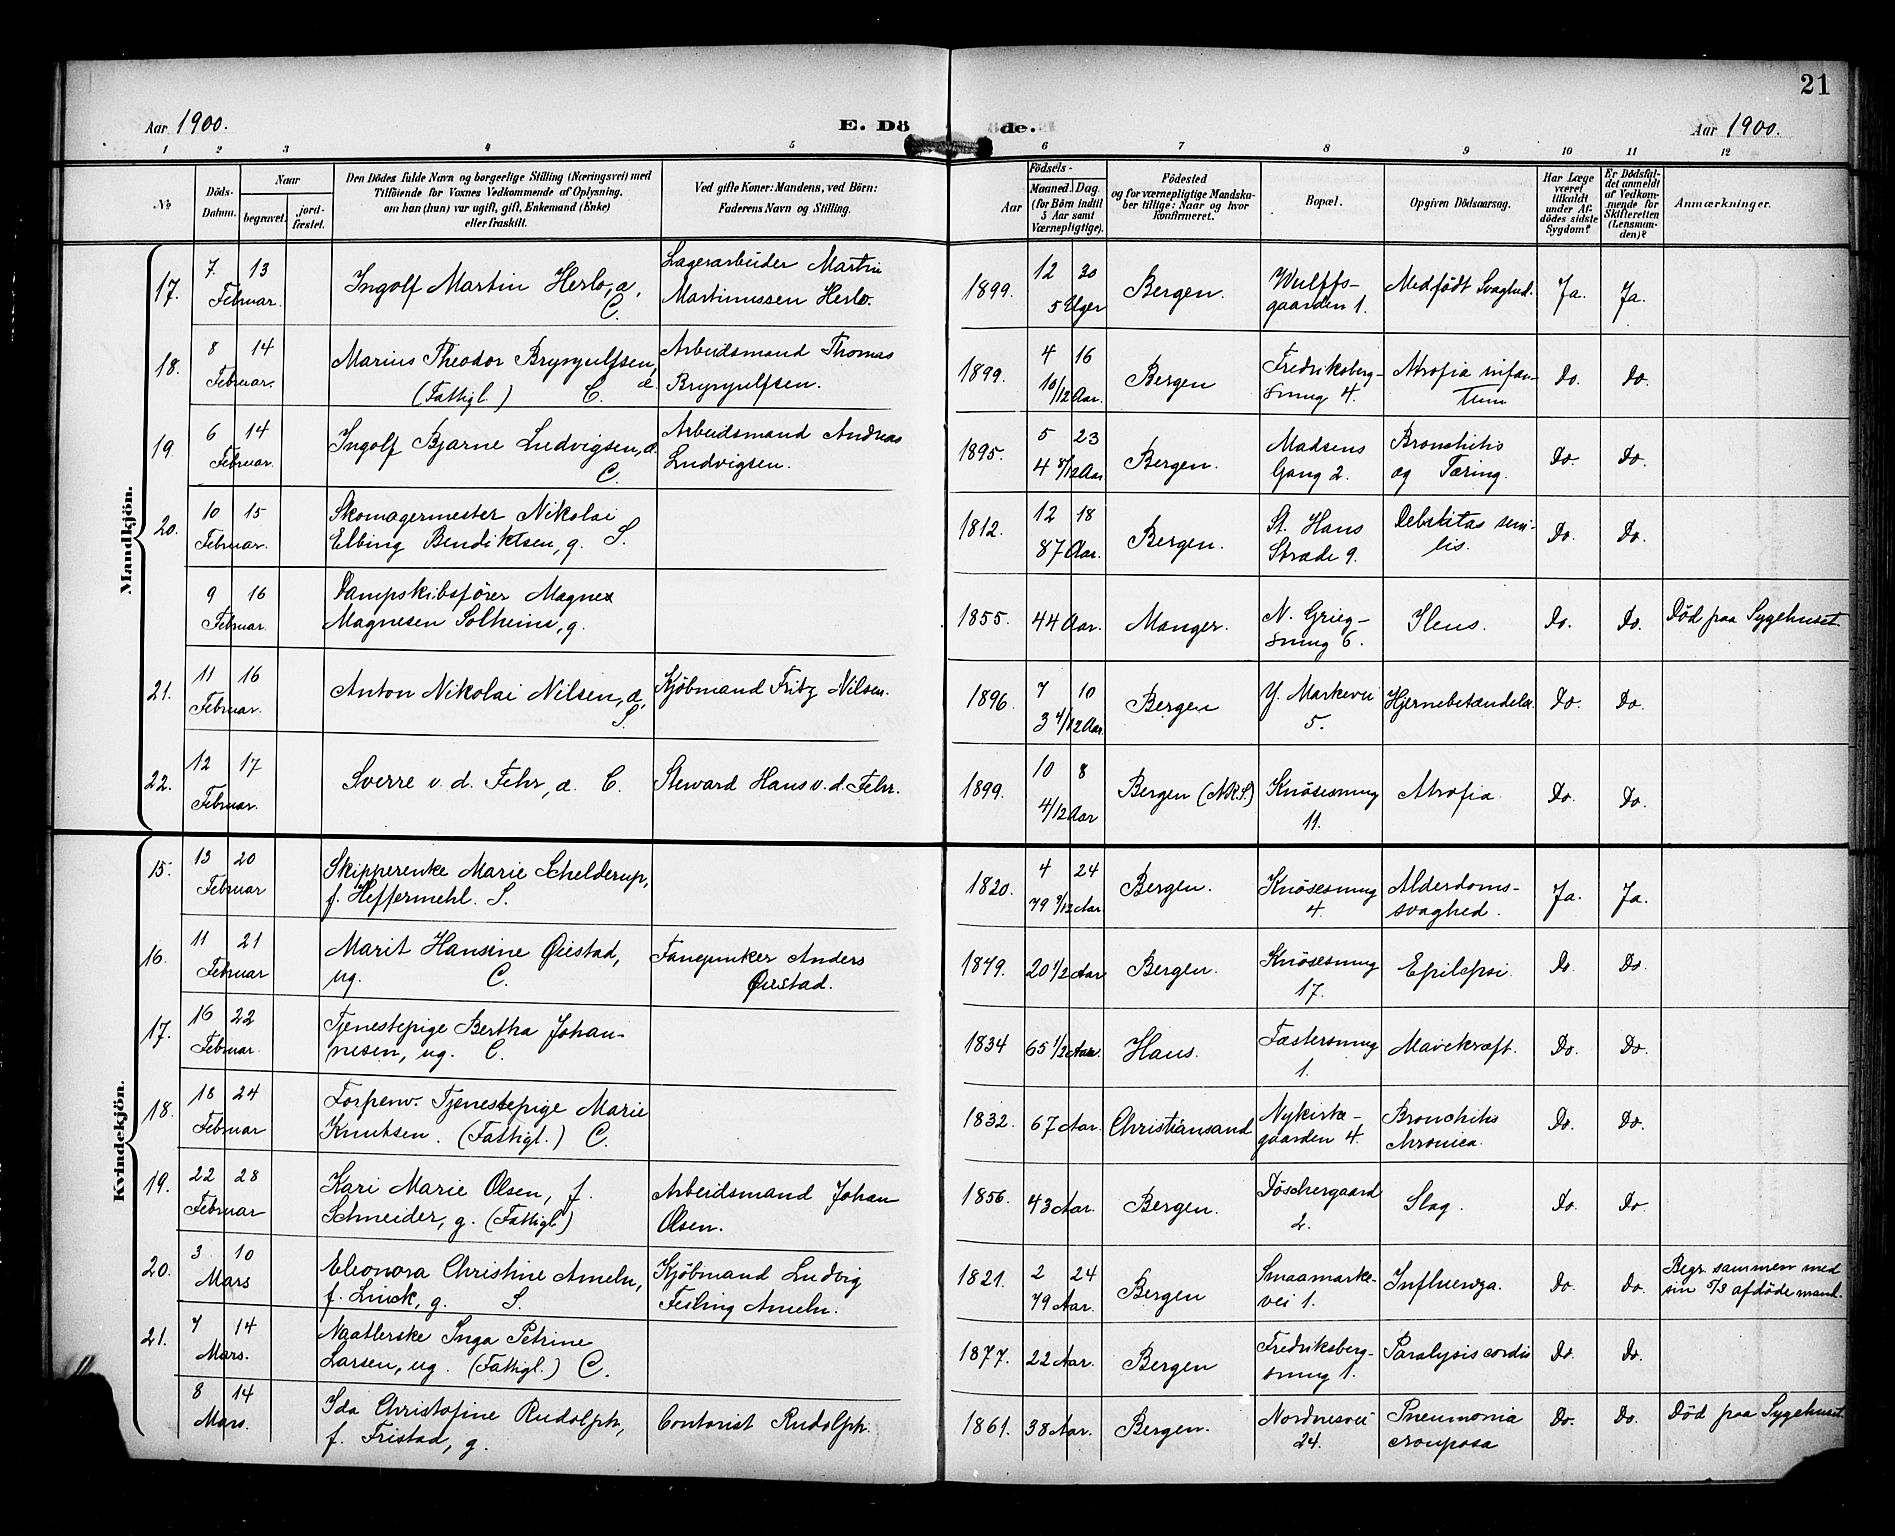 21
Aar 1900.
E. Dö
de.
Aar 1900.
1 2 3 4 5 6 7 8 9 10 11 12
No
Döds-
Datum.
Naar
begravet.
jord-
fæstet.
Den Dödes fulde Navn og borgerlige Stilling (Næringsvei) med
Tilföiende for Voxnes Vedkommende af Oplysning,
om han (hun) var ugift, gift, Enkemand (Enke)
eller fraskilt.
Ved gifte Koner: Mandens, ved Börn:
Faderens Navn og Stilling.
Födsels-
Aar
Maaned. Dag.
(for Börn indtil
5 Aar samt
Værnepligtige).
Födested
og for værnepligtige Mandska-
ber tillige: Naar og hvor
Konfirmeret.
Bopæl.
Opgiven Dödsaarsag.
Har Læge
været
tilkaldt
under Af-
dödes sidste
Sygdom?
Er Dödsfal-
det anmeldt
af Vedkom-
mende for
Skifteretten
(Lensman-
den)?
Anmærkninger.
Mandkjön.
17. 7 13
Februar.
Ingolf Martin Herlo, a.
C.
Lagerarbeider Martin
Martinussen Herlo.
1899. 12 20
5 Uger
Bergen.
Wulffs-
gaarden 1.
Medfödt Svaghed.
Ja. Ja.
18. 8 14
Februar.
Marius Theodor Brynjulfsen,
(Fattigl.) C. a
Arbeidsmand Thomas
Brynjulfsen.
1899. 4 16
10/12 Aar.
Bergen
Fredriksberg-
smug 4.
Atrofia infan-
tum
Do. Do.
19. 6 14
Februar.
Ingolf Bjarne Ludvigsen, a.
C.
Arbeidsmand Andreas
Ludvigsen.
1895. 5 23
4 8/12 Aar
Bergen.
Madsens
Gang 2.
Bronchitis
og Tæring.
Do. Do.
20. 10 15
Februar.
Skomagermester Nikolai
Elbing Bendiktsen, g. S.
1812. 12 18
87 Aar.
Bergen.
St. Hans
Stræde 9.
Debilitas seni-
lis.
Do. Do.
9 16
Februar.
Dampskibsfører Magnes
Magnesen Solheim, g.
1855. 44 Aar.
Manger.
N. Grieg-
smug 6.
Ileus.
Do. Do.
Död paa Sygehuset
21. 11 16
Februar.
Anton Nikolai Nilsen, a,
S.
Kjöbmand Fritz Nilsen.
1896 7 10
3 4/12 Aar.
Bergen
Y. Markevei
5.
Hjernebetændelse.
Do. Do.
22. 12 17
Februar.
Sverre v. d. Fehr, a. C.
Steward Hans v. d. Fehr.
1899. 10 8
4/12 Aar
Bergen (N.K.S.)
Knösesmug
11.
Atrofia.
Do. Do.
Kvindekjön.
15. 13 20
Februar
Skipperenke Marie Schelderup,
f. Heffermehl. S.
1820. 4 24
79 9/12 Aar.
Bergen.
Knösesmug
4.
Alderdoms-
svaghed.
Ja. Ja.
16. 11 21
Februar
Marit Hansine Øiestad,
ug. C.
Anders
Øiestad.
1879. 20 1/2 Aar
Bergen.
Knösesmug
17.
Epilepsi.
Do. Do.
17. 16 22
Februar.
Tjenestepige Bertha Johan-
nesen, ug. C.
1834 65 1/2 Aar.
Haus.
Fæstersmug
1.
Mavekræft.
Do. Do.
18. 18 24
Februar
Forhenv. Tjenestepige Marie
Knutsen. (Fattigl.) C.
1832. 67 Aar.
Christiansand
Nykirke-
gaarden 4.
Bronchitis
chronica.
Do. Do.
19. 22 28
Februar
Kari Marie Olsen, f.
Schneider, g. (Fattigl.)
Arbeidsmand Johan
Olsen.
1856. 43 Aar.
Bergen.
Döschergaard
2.
Slag.
Do. Do.
20. 3 10
Mars
Eleonora Christine Ameln,
f. Linck, g. S.
Kjöbmand Ludvig
Feiling Ameln.
1821. 2 24
79 Aar.
Bergen
Smaamarke-
vei 1.
Influenza.
Do. Do.
Begr. sammen med
sin 5/3 afdöde mand.
21. 7 14
Mars.
Naatlerske Inga Petrine
Larsen, ug. (Fattigl.) C.
1877. 22 Aar.
Bergen
Fredriksberg-
smug 1.
Paralysis cordis
Do. Do.
8 14
Mars.
Ida Christofine Rudolph,
f. Fristad, g.
Contorist Rudolph.
1861. 38 Aar.
Bergen.
Nordnesvei
24.
Pneumonia
crouposa
Do. Do.
Död paa Sygehuset